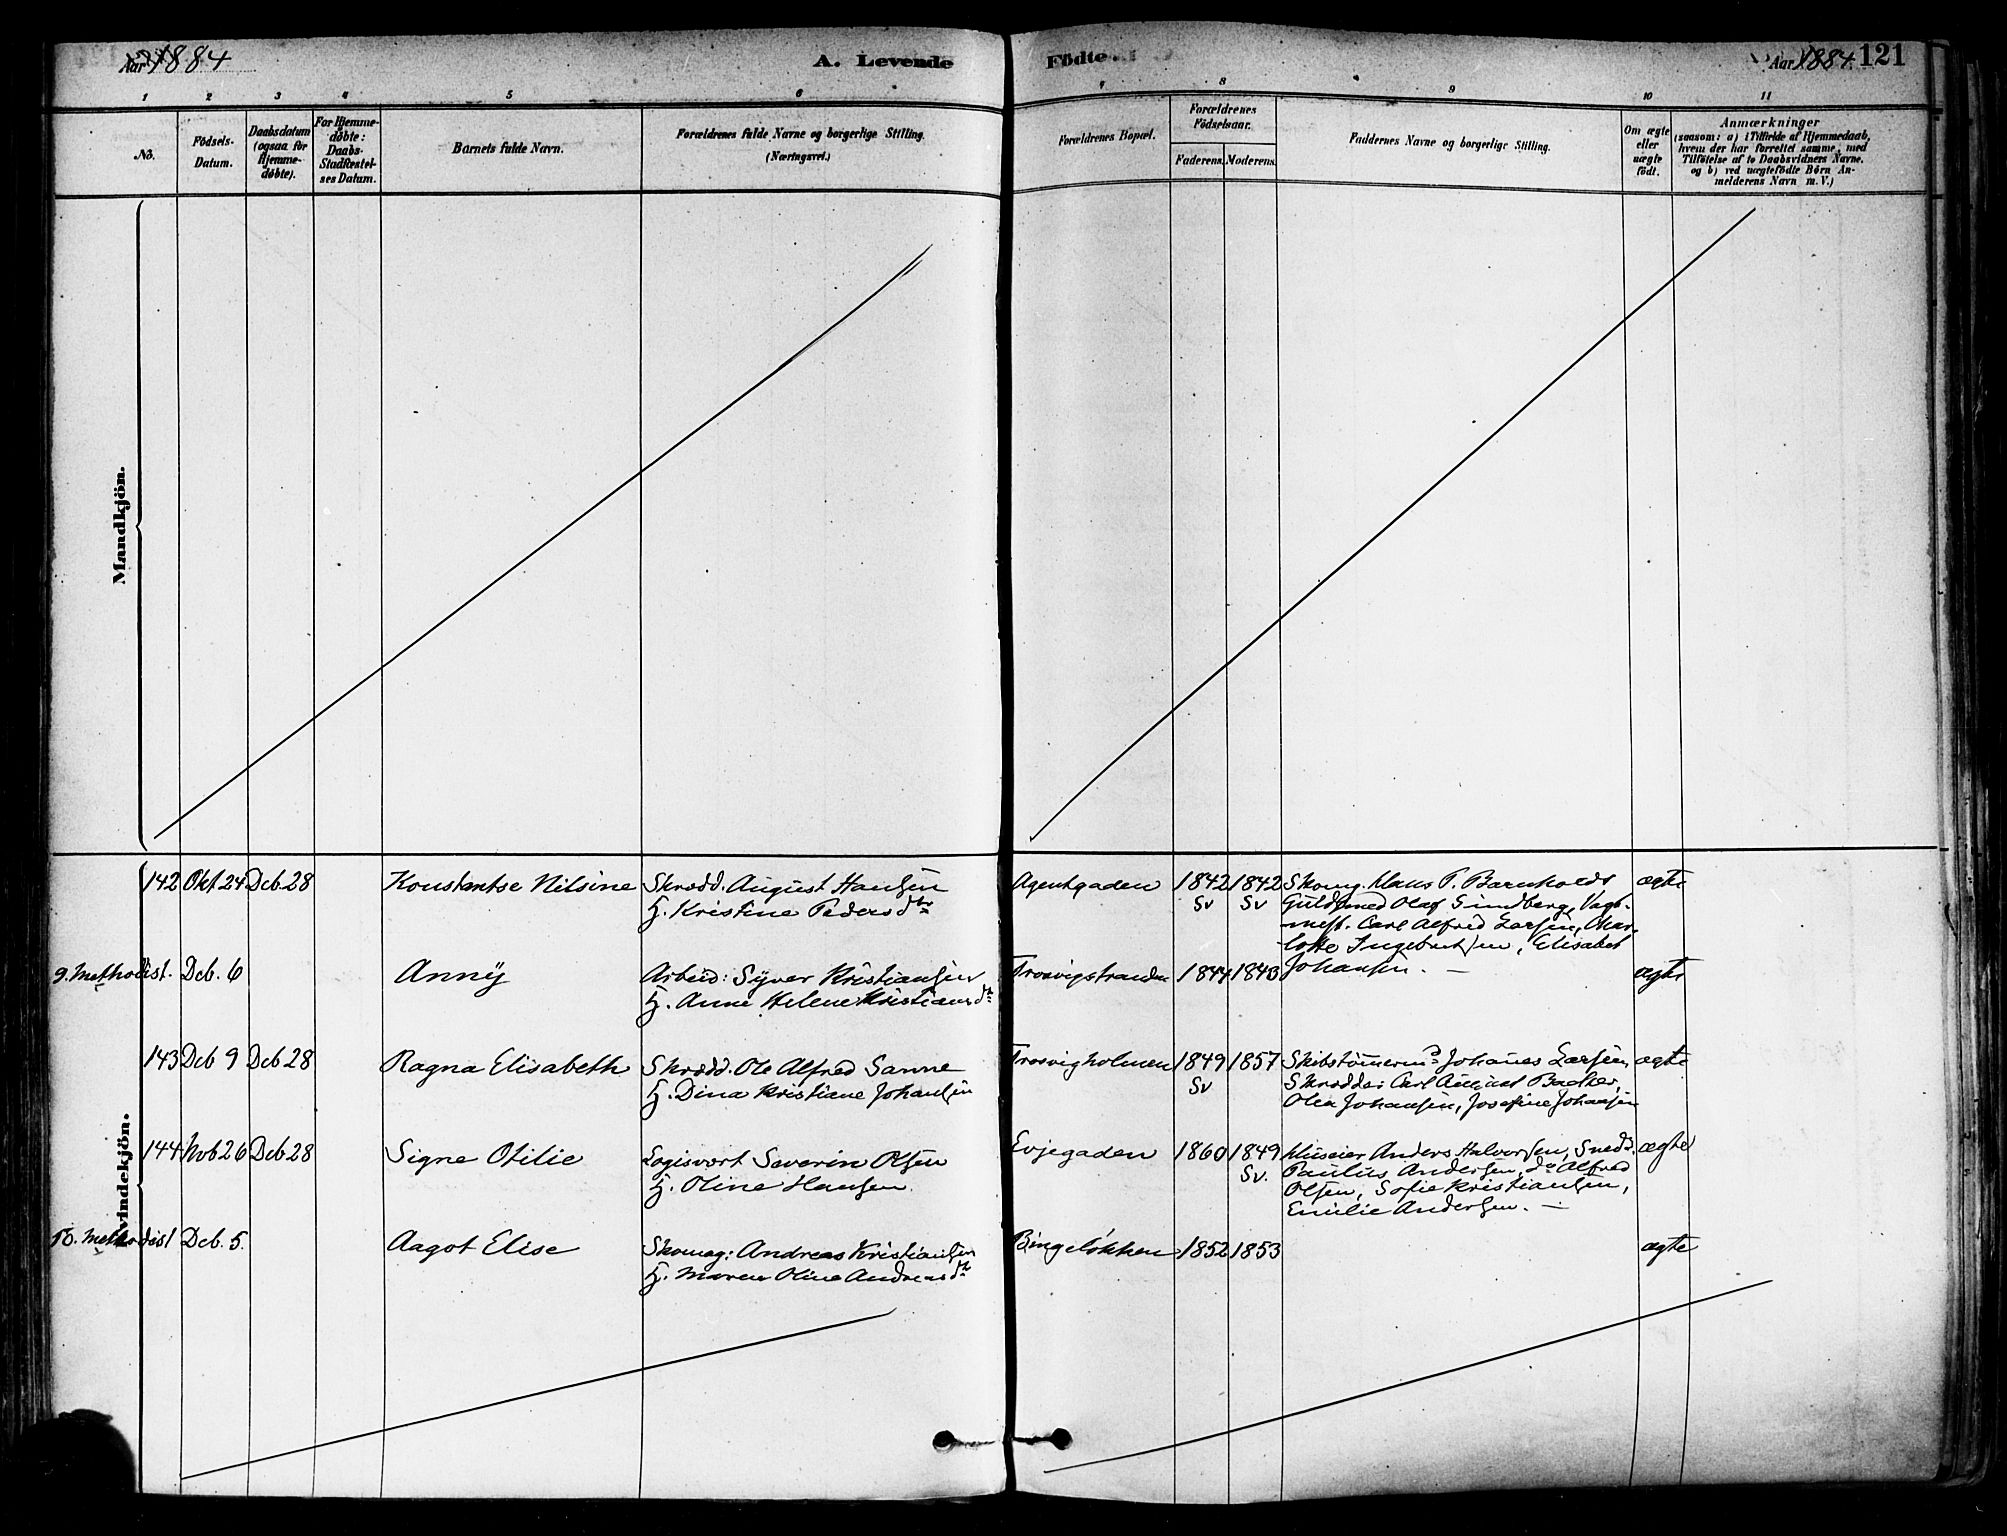 Aar 1884
A. Levende
Födte
Aar 1884. 121
1 2 3 4 5 6 7 8 9 10 11
No.
Födsels-
Datum.
Daabsdatum
(ogsaa for
Hjemme-
døbte).
For Hjemme-
døbte:
Daabs-
Stadfæstel-
ses Datum.
Barnets fulde Navn.
Forældrenes fulde Navne og borgerlige Stilling.
(Næringsvei.)
Forældrenes Bopæl.
Forældrenes
Födselsaar.
Faderens. Moderens.
Faddernes Navne og borgerlige Stilling.
Om ægte
eller
uægte
födt.
Anmærkninger
(saasom: a) i Tilfælde af Hjemmedaab,
hvem der har forrettet samme, med
Tilföielse af to Daabsvidners Navne,
og b) ved uægtefödte Börn An-
melderens Navn m. V.)
Mandkjön.
Kvindekjön.
142 Okt 24 Deb. 28 Konstantse Nilsine Skrædd. August Hansen Agentgaden 1842 1842 Skomg. Klaus P. Barnholdt ægte
H. Kristine Pedersdtr Sv Sv Guldsmed Olaf Sundberg, Vagt-
mest. Carl Alfred Larsen, Char-
lotte Ingebretsen, Elisabet
Johansen. —
9. Methodist. Deb. 6 Anny Arbeid: Syver Kristiansen Trosvigstranden 1844 1843 ægte
H. Anne Helene Kristiansdtr
143 Deb 9 Deb 28 Ragna Elisabeth Skrædd. Ole Alfred Sanne Trosvigholmen 1849 1857 Skibstømermd Johanes Larsen ægte
H. Dina Kristiane Johansen Sv Skrædder Carl August Backer,
Olea Johansen, Josefine Johansen
144 Nob 26 Deb 28 Signe Otilie Logisvært Severin Olsen Evjegaden 1860 1849 Huseier Anders Halvorsen, Snedd. ægte
H. Oline Hansen. Sv. Paulus Andersen, do Alfred
Olsen, Sofie Kristiansen,
Emilie Andersen. —
10. Methodist Deb. 5. Aagot Elise Skomag: Andreas Kristiansen Bingeløkken 1852 1853 ægte
H. Maren Oline Andreasdtr